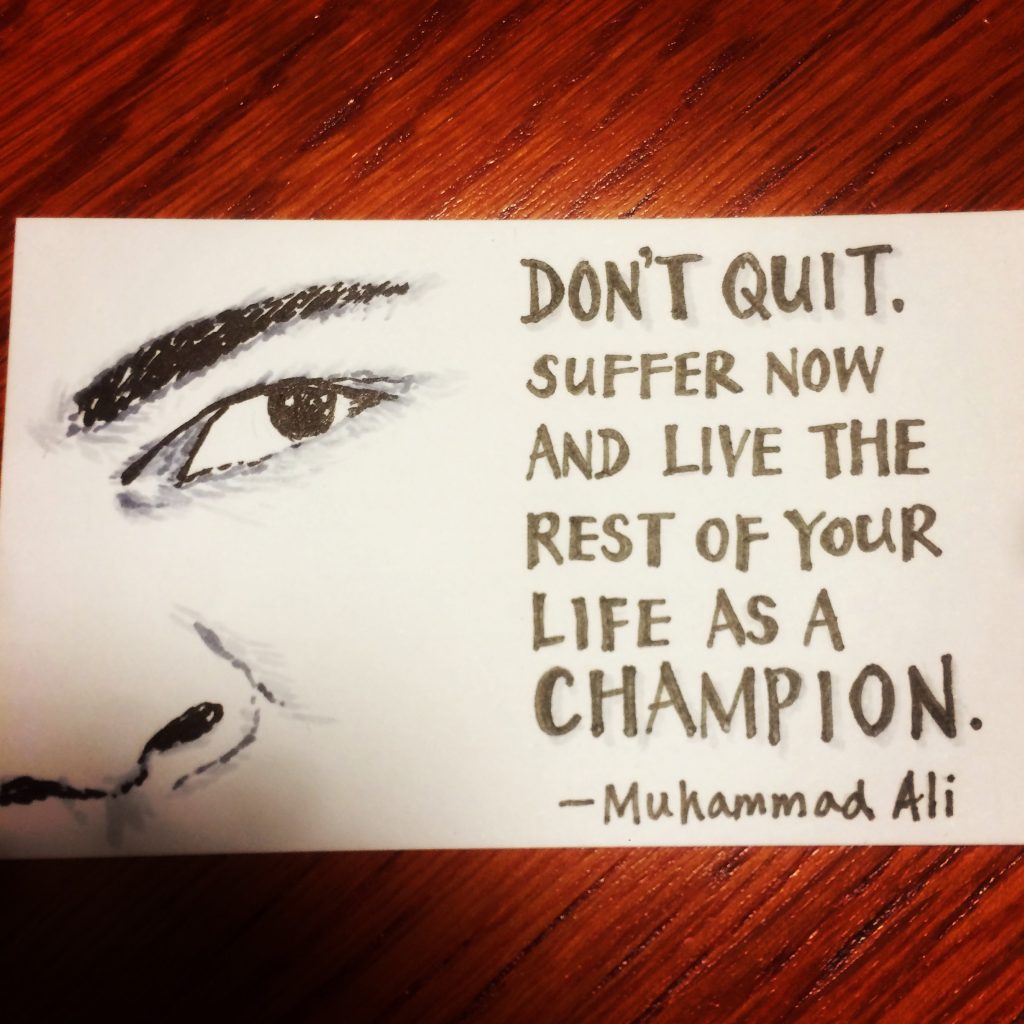 DON'T QUIT.
SUFFER NOW
AND LIVE THE
REST OF YOUR
LIFE AS A
CHAMPION.
—Muhammad Ali